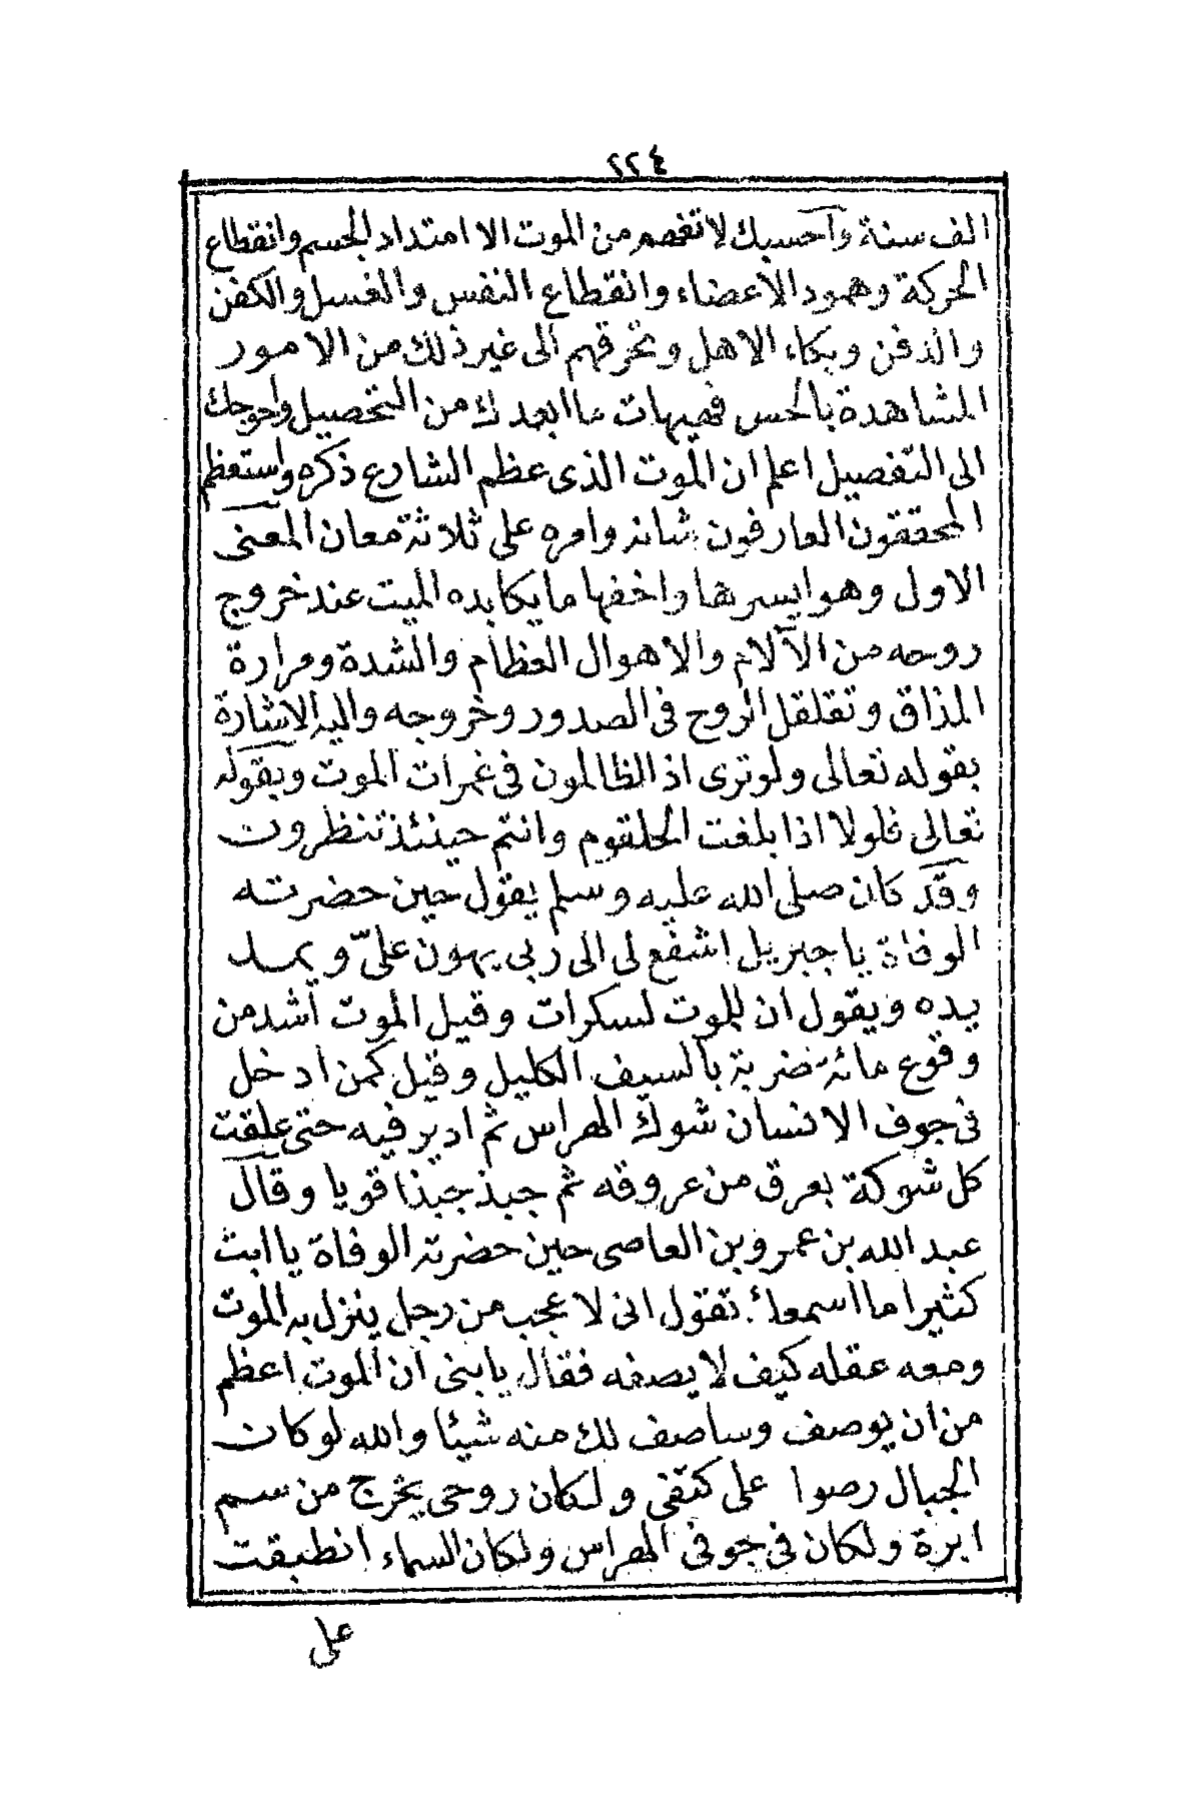 ٢٢٤
الف سنة وآحسبك لا تفهم من الموت الا امتداد الجسم وانقطاع
الحركة وهمود الاعضاء وانقطاع النفس والغسل والكفن
والدفن وبكاء الاهل وتحرقهم الى غير ذلك من الامور
المشاهدة بالحس فهيهات ما ابعدك من التحصيل واحوجك
الى التفصيل اعلم ان الموت الذى عظم الشارع ذكره واستعظم
المحققون العارفون شانه وامره على ثلاثة معان المعنى
الاول وهو ايسرها واخفها ما يكابده الميت عند خروج
روحه من الآلام والاهوال العظام والشدة ومرارة
المذاق وتقلقل الروح فى الصدور وخروجه واليه الاشارة
بقوله تعالى ولو ترى اذ الظالمون فى غمرات الموت وبقوله
تعالى فلولا اذا بلغت الحلقوم وانتم حينئذ تنظرون
وقد كان صلى الله عليه وسلم يقول حين حضرته
الوفاة يا جبريل اشفع لى الى ربى يهون علىّ ويمد
يده ويقول ان للموت لسكرات وقيل الموت اشد من
وقوع مائة ضربة بالسيف الكليل وقيل كمن ادخل
فى جوف الانسان شوك المهراس ثم ادير فيه حتى علقت
كل شوكة بعرق من عروقه ثم جبذ جبذا قويا وقال
عبد الله بن عمرو بن العاصى حين حضرته الوفاة يا ابت
كثيرا ما اسمعك تقول انى لا عجب من رجل ينزل به الموت
ومعه عقله كيف لا يصفه فقال يا بنى ان الموت اعظم
من ان يوصف وساصف لك منه شيئا والله لو كان
الجبال رصوا على كتفى ولكان روحى يخرج من سم
ابرة ولكان فى جوفى المهراس ولكان السماء انطبقت
على